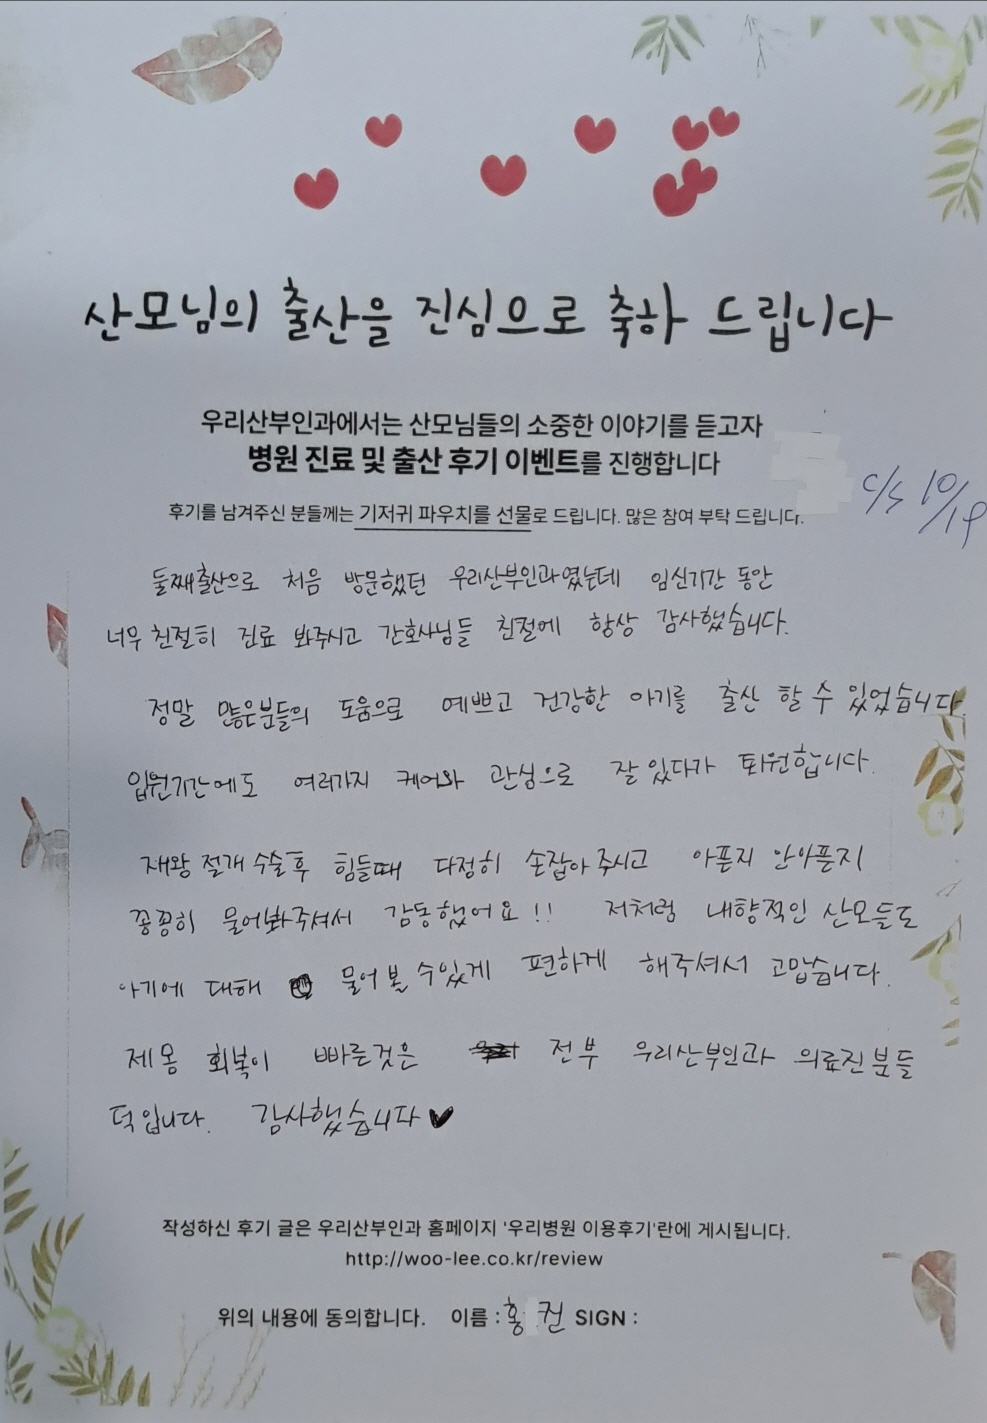 산모님의 출산을 진심으로 축하 드립니다
우리산부인과에서는 산모님들의 소중한 이야기를 듣고자
병원 진료 및 출산 후기 이벤트를 진행합니다
c/s 10/19
후기를 남겨주신 분들께는 기저귀 파우치를 선물로 드립니다. 많은 참여 부탁 드립니다.
둘째출산으로 처음 방문했던 우리산부인과였는데 임신기간 동안
너무 친절히 진료 봐주시고 간호사님들 친절에 항상 감사했습니다.
정말 많은분들의 도움으로 예쁘고 건강한 아기를 출산 할 수 있었습니다
입원기간에도 여러가지 케어와 관심으로 잘 있다가 퇴원합니다.
재왕 절개 수술 후 힘들때 다정히 손잡아 주시고 아픈지 안아픈지
꼼꼼히 물어봐주셔서 감동했어요!! 저처럼 내향적인 산모들도
아기에 대해 물어 볼 수있게 편하게 해주셔서 고맙습니다.
제 몸 회복이 빠른것은 전부 우리산부인과 의료진분들
덕입니다. 감사했습니다♥
작성하신 후기 글은 우리산부인과 홈페이지 '우리병원 이용후기'란에 게시됩니다.
http://woo-lee.co.kr/review
위의 내용에 동의합니다. 이름 : 홍 전 SIGN :